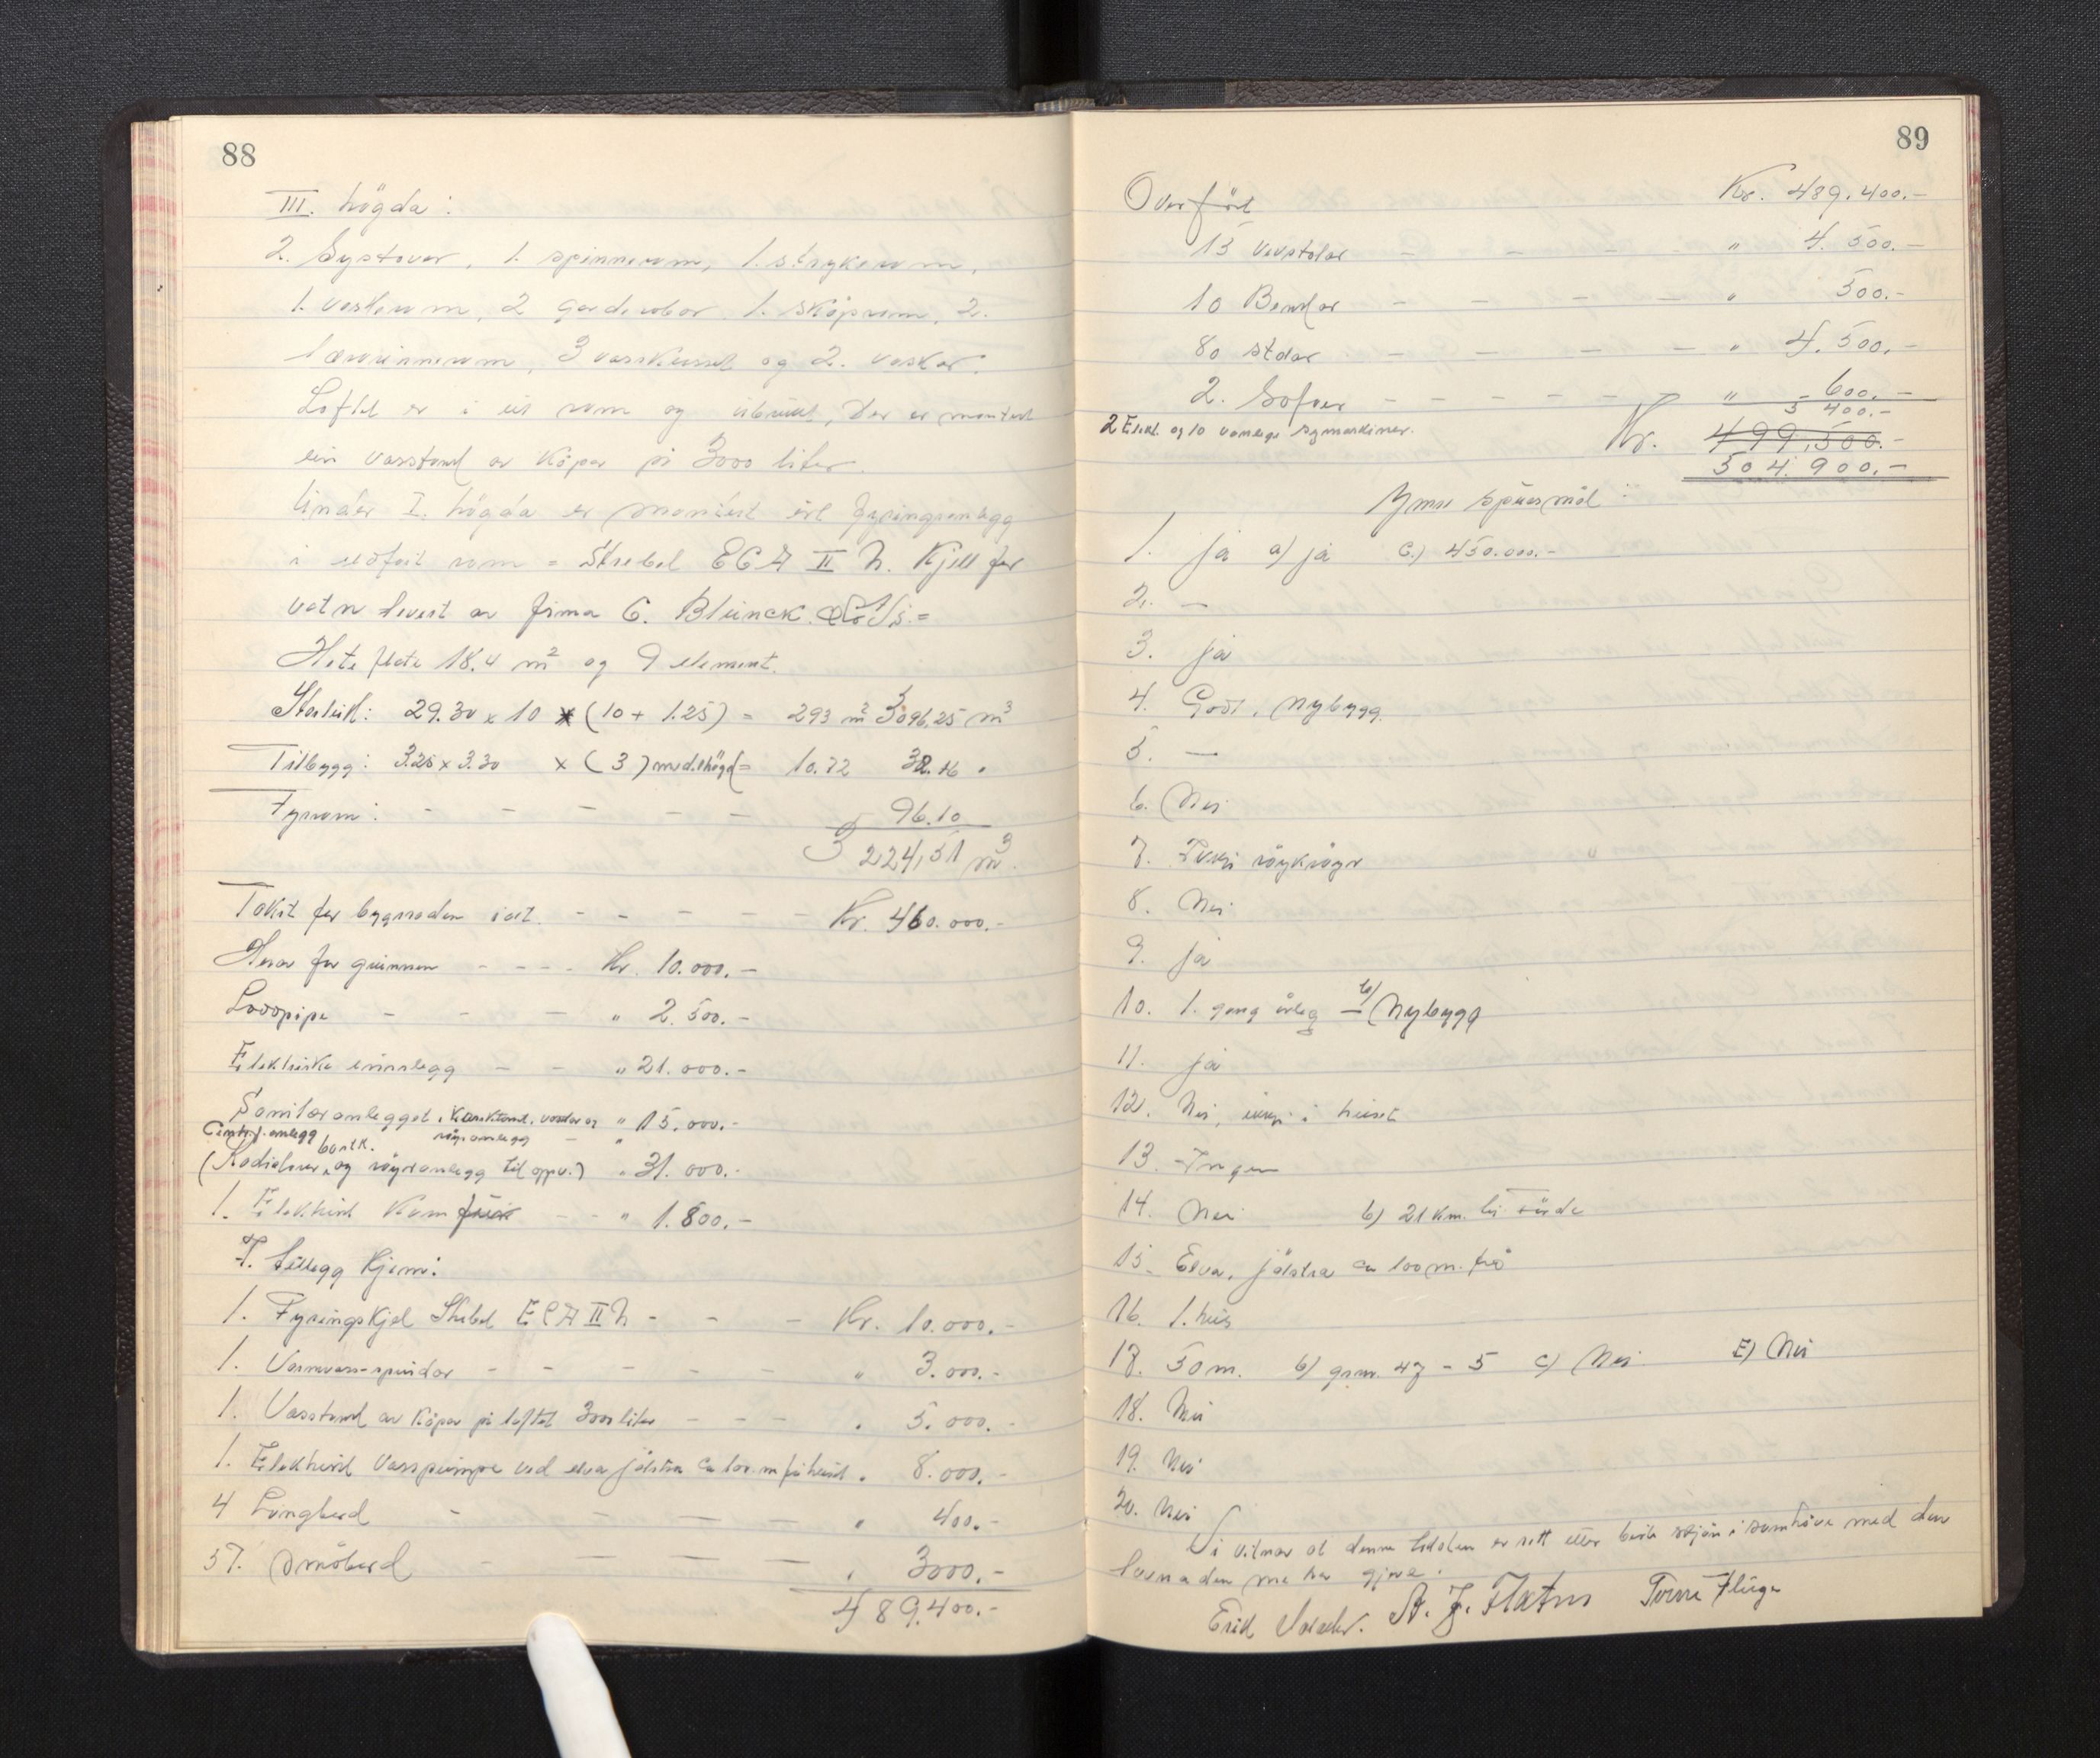 88
III. högda:
2. Systover, 1. spinnerom, 1. strykerom,
1. vaskerom, 2 garderober. 1. skåprom, 2.
lærarinnerom, 3 vassklosett og 2. vaskar.
Loftet er i eit rom og ubrukt, Der er montert
ein vasstank av kåpar på 3000 liter.
Under I. högda er montert eit fyringsanlegg
i eldfast rom = Strebel ECA II N. Kjell for
vatn levert av firma C. Blunck
Hete flate 18.4 m² og 9 element.
Storleik: 29.30 x 10 x (10 + 1.25) = 293 m² 3096,25 m³
Tilbygg: 3.25 x 3.30 x (3) med.högd = 10.72 32.16 "
Fyrrom: - - - - - 96.10
3 224,51 m³.
Takst for bygnaden i alt. - - - - - Kr. 460.000.-
Herav for grunnen - - - - Kr. 10.000.-
Loddpipe - - - - " 2.500.-
Elektriske innlegg - - " 21.000.-
Sanitæranlegget, vasktank, vaskar og " 15.000.-
Centr.f.anlegg röiranlegg - "
(Radiatorer og röyranlegg til oppv.) " 31.000.-
1. Elektrisk Komfüir - - " 1.800.-
I. tillegg kjem:
1. Fyringskjel Strebel ECA II N - - - Kr. 10.000.-
1. Varmvass-spreidar - - - - - - " 3.000.-
1. Vasstank av kåpar på loftet 3000 liter - - - " 5.000.-
1. Elektrisk Vasspumpe ved elva Jölstra ca 100.m frå huset " 8.000.-
4 Langbord - - - - " 400.-
37. småbord - - - - " 3000.-
489.400.-
89
Overfört Kr. 489.400.-
15 vevstolar - - - - " 4.500.-
10 Benkar - - - - " 500.-
80 stolar - - - - " 4.500.-
2. Sofaer - - - - - - " 600.-
2 Elekt. og 10 vanlege symaskiner. 5 400.-
Kr. 499,500.-
504.900.-
Ymse spörsmål:
1. ja a) ja c.) 450.000.-
2. -
3. ja
4. God, nybygg.
5. -
6. Nei
7. röykröyr
8. Nei
9. ja
10. 1. gang årleg - b) Nybygg
11. ja
12. Nei, ikkje i huset
13. Ingen
14. Nei b) 21 km. til Förde
15. Elva, jölstra ca 100 m. frå
16. 1. hus
17. 50 m. b) grnr. 47 - 5 c) Nei E) Nei
18. Nei
19. Nei
20. Nei
Vi vitnar at denne taksten er sett etter beste skjön i samhöve med den
lovnaden me har gjeve.
A. J. Flatnes